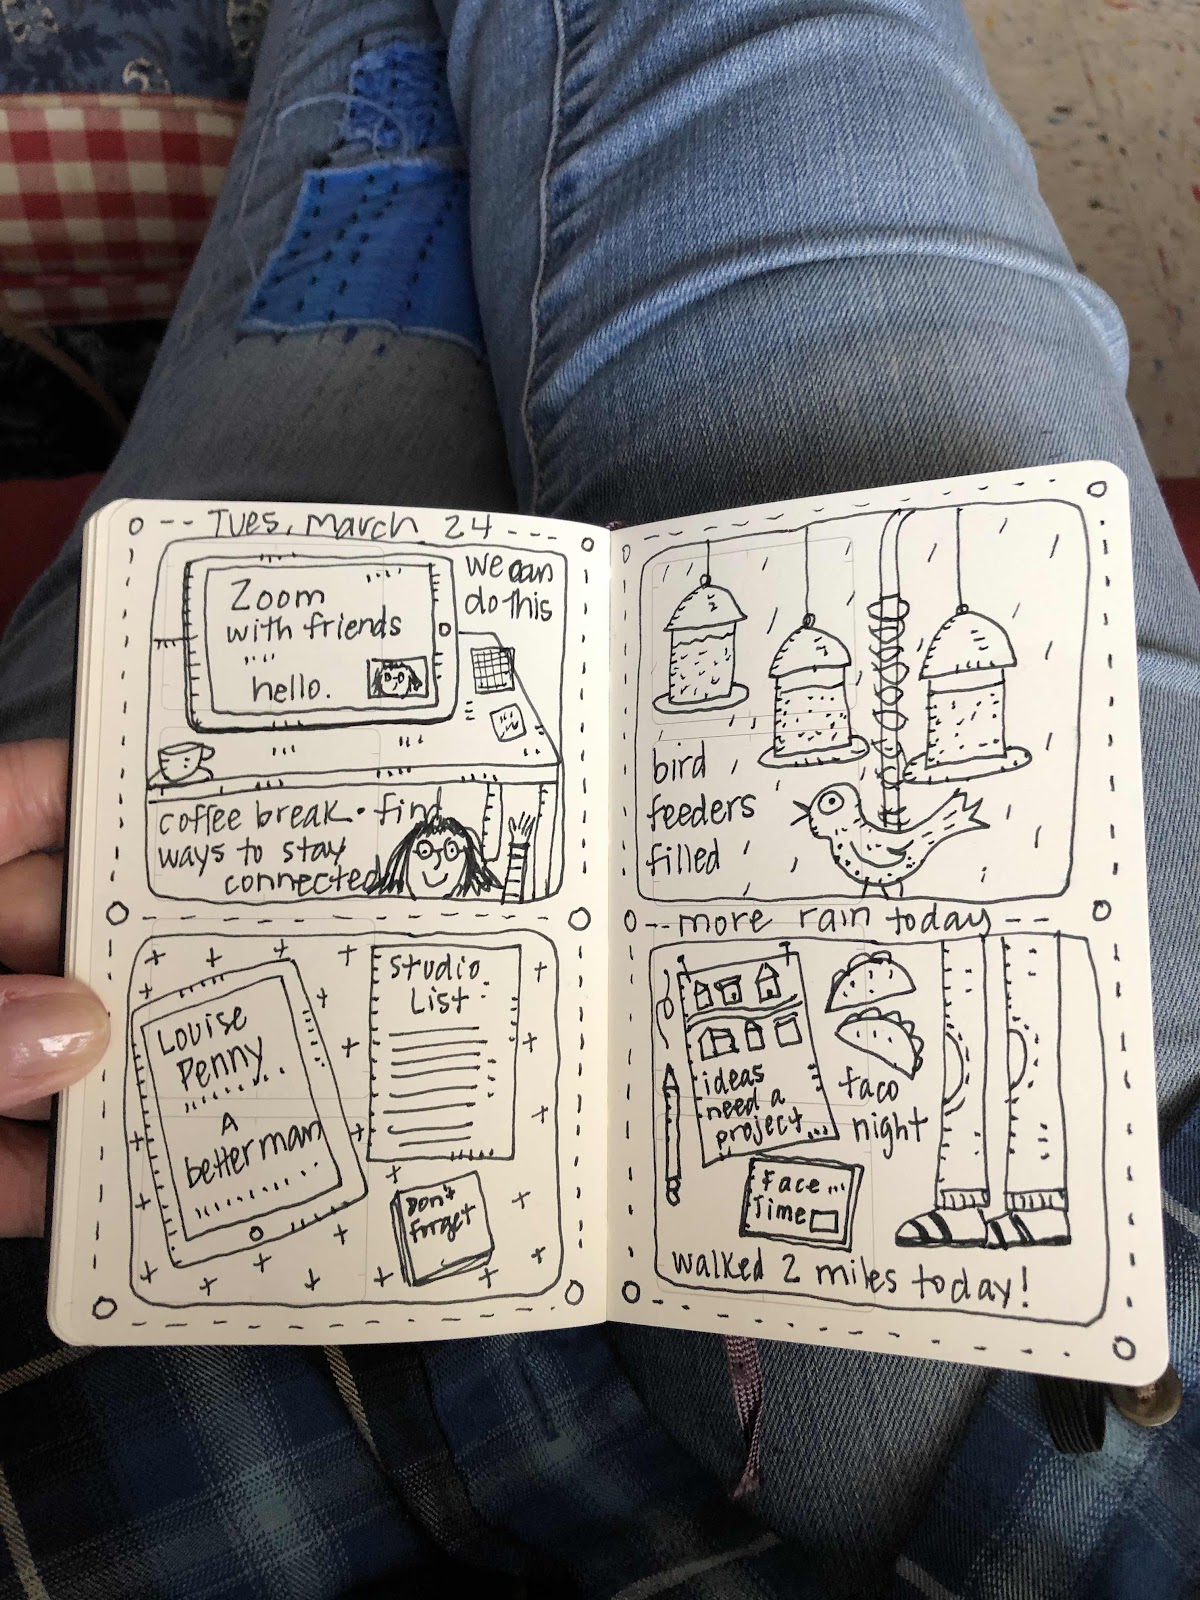 Tues, march 24
we can
do this
Zoom
with friends
hello.
coffee break • find
ways to stay
connected
Louise
Penny
A
better man
Studio
List:
Don't
forget
bird
feeders
filled
more rain today
ideas
need a
project...
taco
night
Face...
Time
walked 2 miles today!